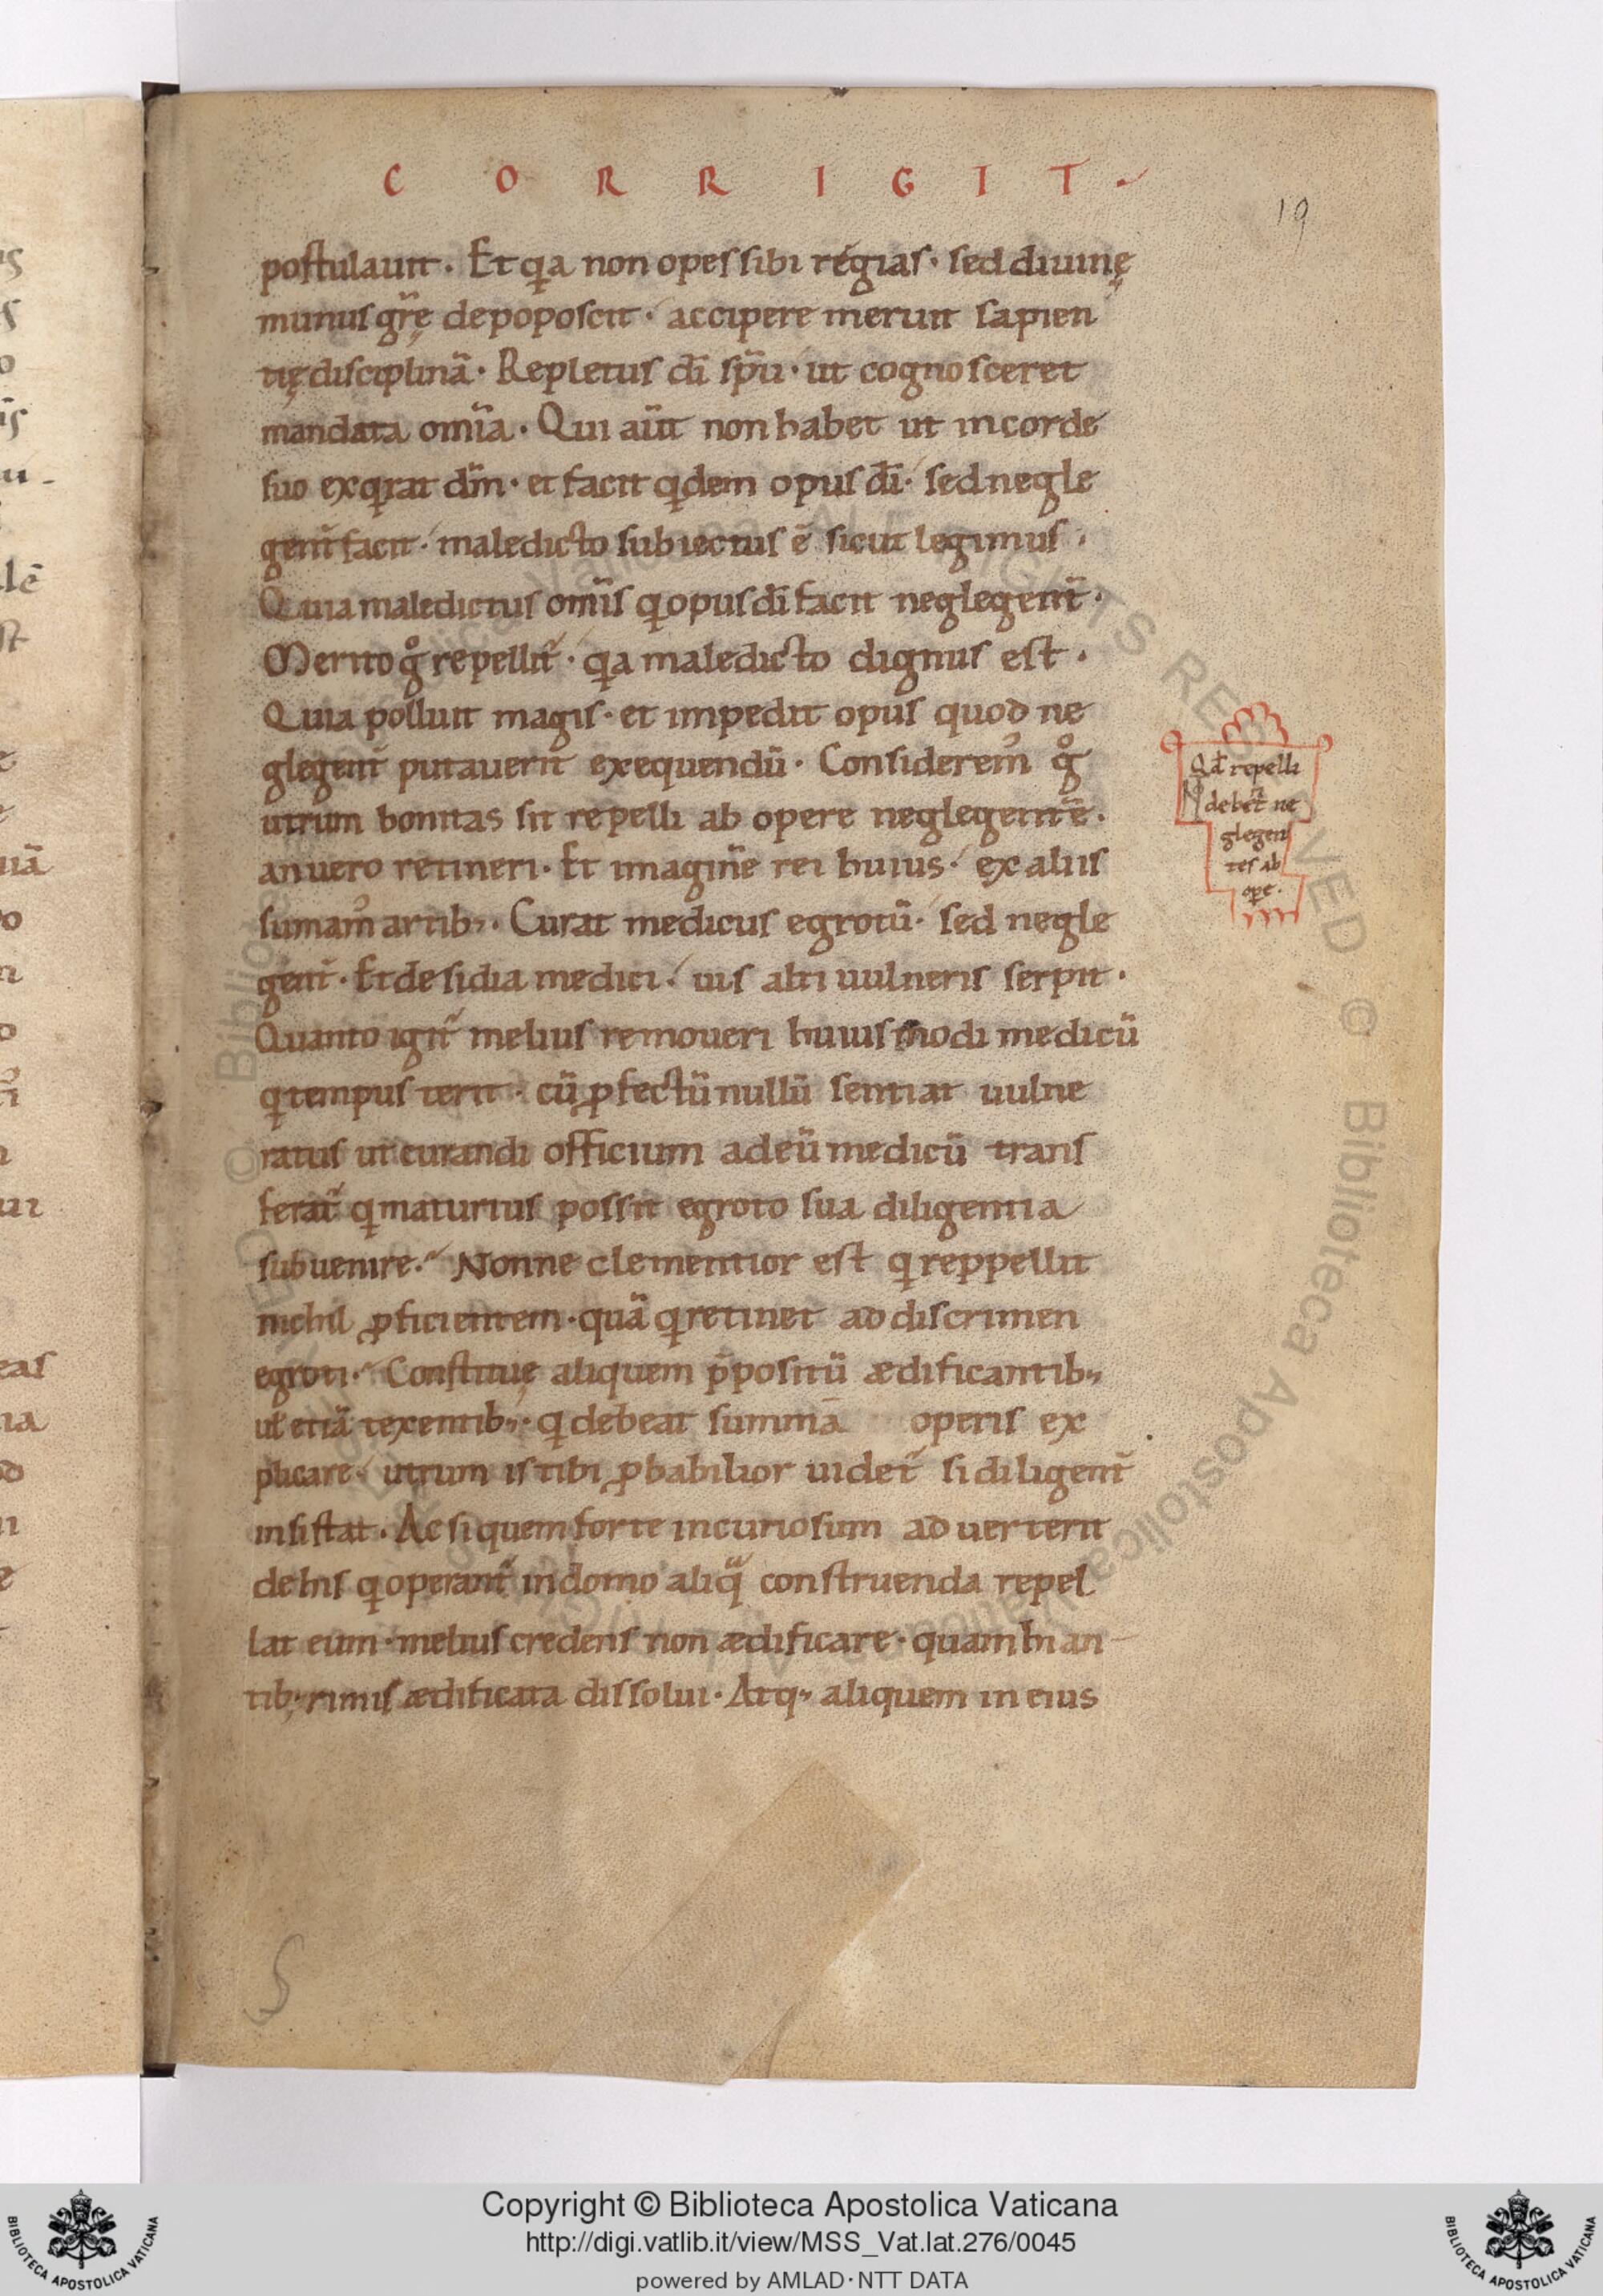 C O R R I G I T .
19
postulauit. Et qa non opes sibi regias. sed diuinę
munus gr̄ę depoposcit. accipere meruit sapien
tię disciplinā. Repletus dī sp̄u. ut cognosceret
mandata om̄ia. Qui aūt non habet ut in corde
suo exqrat dm̄. et facit qdem opus dī. sed negle
gent̄ facit. maledicto subiectus ē sicut legimus.
Quia maledictus om̄is q opus dī facit neglegent̄.
Merito gͦ repellit̄. qa maledicto dignus est.
Quia polluit magis. et impedit opus quod ne
glegent̄ putauerit exequendū. Considerem᾽ gͦ
utrum bonitas sit repelli ab opere neglegentē.
an uero retineri. Et imaginē rei huius. ex aliis
sumam᾽ artib;. Curat medicus egrotū. sed negle
gent̄. Et desidia medici. uis alti uulneris serpit.
Quanto igit̄ melius remoueri huiusmodi medicū
q tempus terit. cū ꝓfectū nullū sentiat uulne
ratus ut curandi officium ad eū medicū trans
ferat̄ q maturius possit egroto sua diligentia
subuenire. Nonne clementior est q reppellit
nichil ꝓficientem. quā q retinet ad discrimen
egroti. Constitue aliquem p̄positū ædificantib;
ul̄ etiā texentib;. q debeat summā operis ex
plicare. utrum is tibi ꝓbabilior uidet̄ si diligent̄
insistat. Ac si quem forte incuriosum aduerterit
de his q operant̄ in domo aliq̄ construenda repel
lat eum. melius credens non ædificare. quam hian-
tib; rimis ædificata dissolui. Atq; aliquem in eius
Qd̄ repelli
debent̄ ne
glegen
tes ab
ope.
S
© Biblioteca Apostolica Vaticana ALL RIGHTS RESERVED
Copyright © Biblioteca Apostolica Vaticana
http://digi.vatlib.it/view/MSS_Vat.lat.276/0045
powered by AMLAD·NTT DATA
BIBLIOTECA APOSTOLICA VATICANA
BIBLIOTECA APOSTOLICA VATICANA